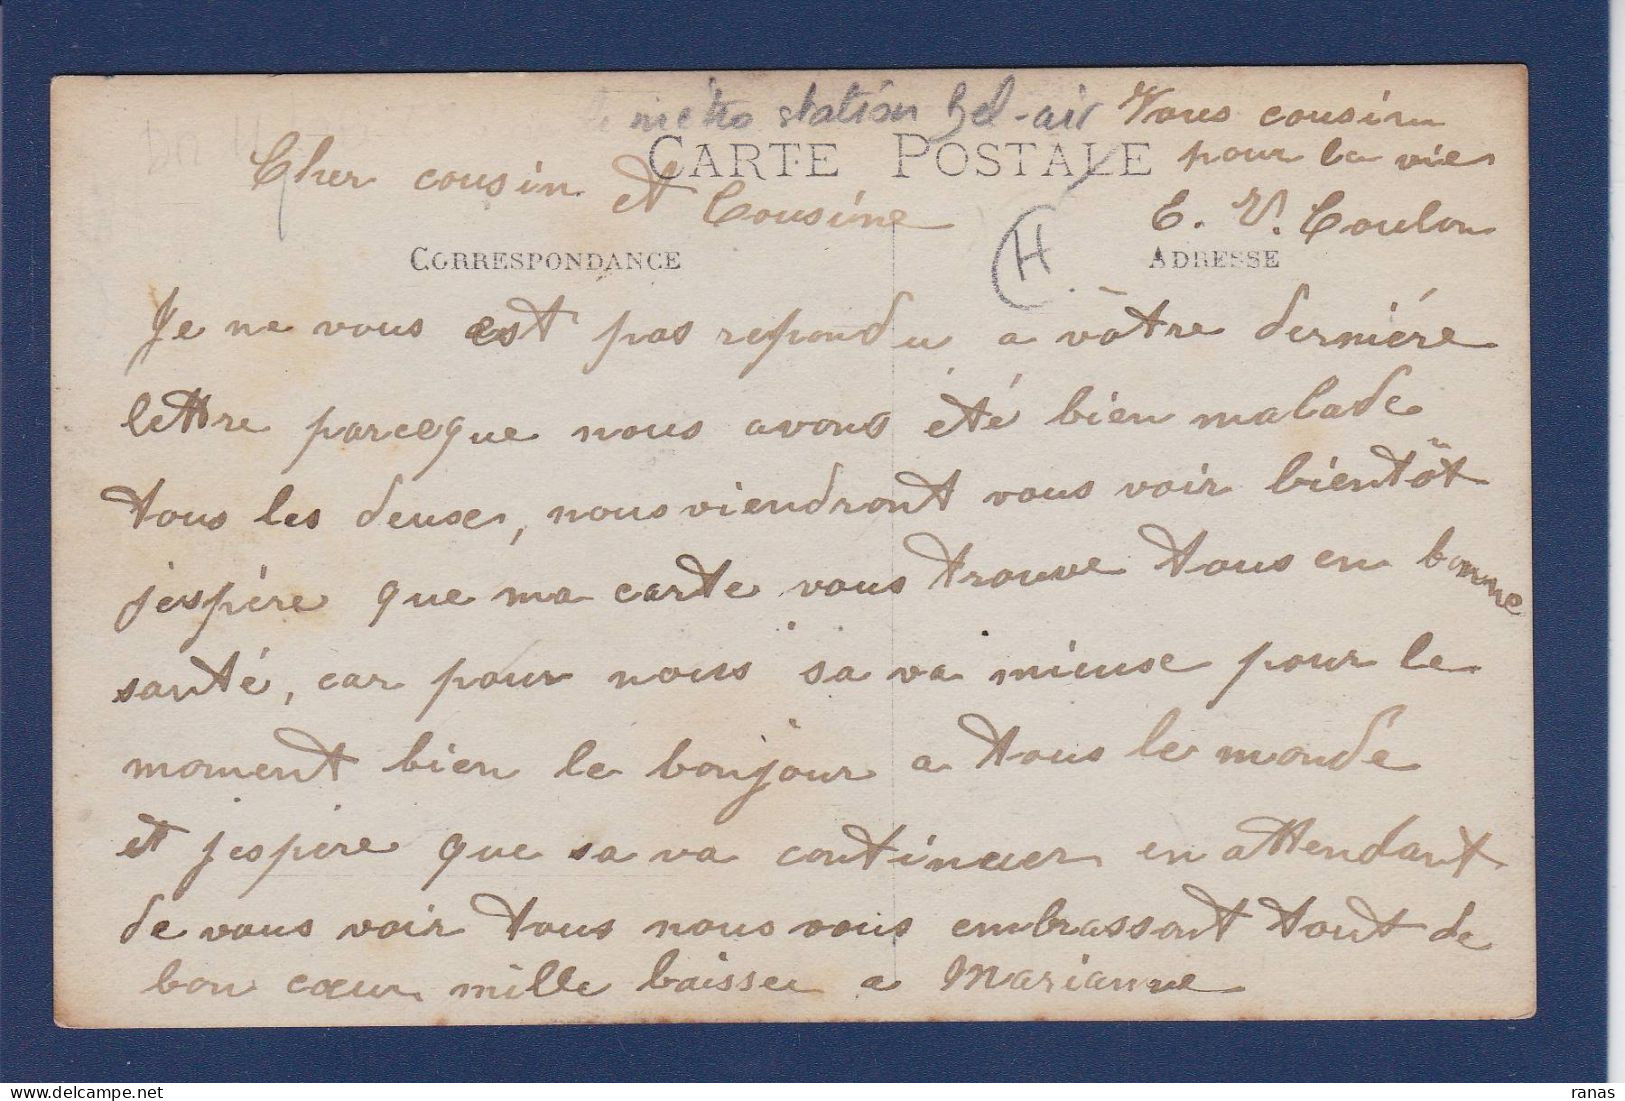 métro station Bel-air
CARTE POSTALE
Vous cousin
pour la vie
E. V. Coulon
Cher cousin et Cousine
H
CORRESPONDANCE
ADRESSE
Je ne vous est pas repondu a vôtre derniére
lettre parceque nous avons été bien malade
tous les deuse, nous viendront vous voir bientôt
j'espère que ma carte vous trouve tous en bonne
santé, car pour nous sa va mieuse pour le
moment bien le bonjour a tous le monde
et j'espire que sa va continuer en attendant
de vous voir tous nous vous embrassont tout de
bon cœur mille baisse a Marianne
ranas